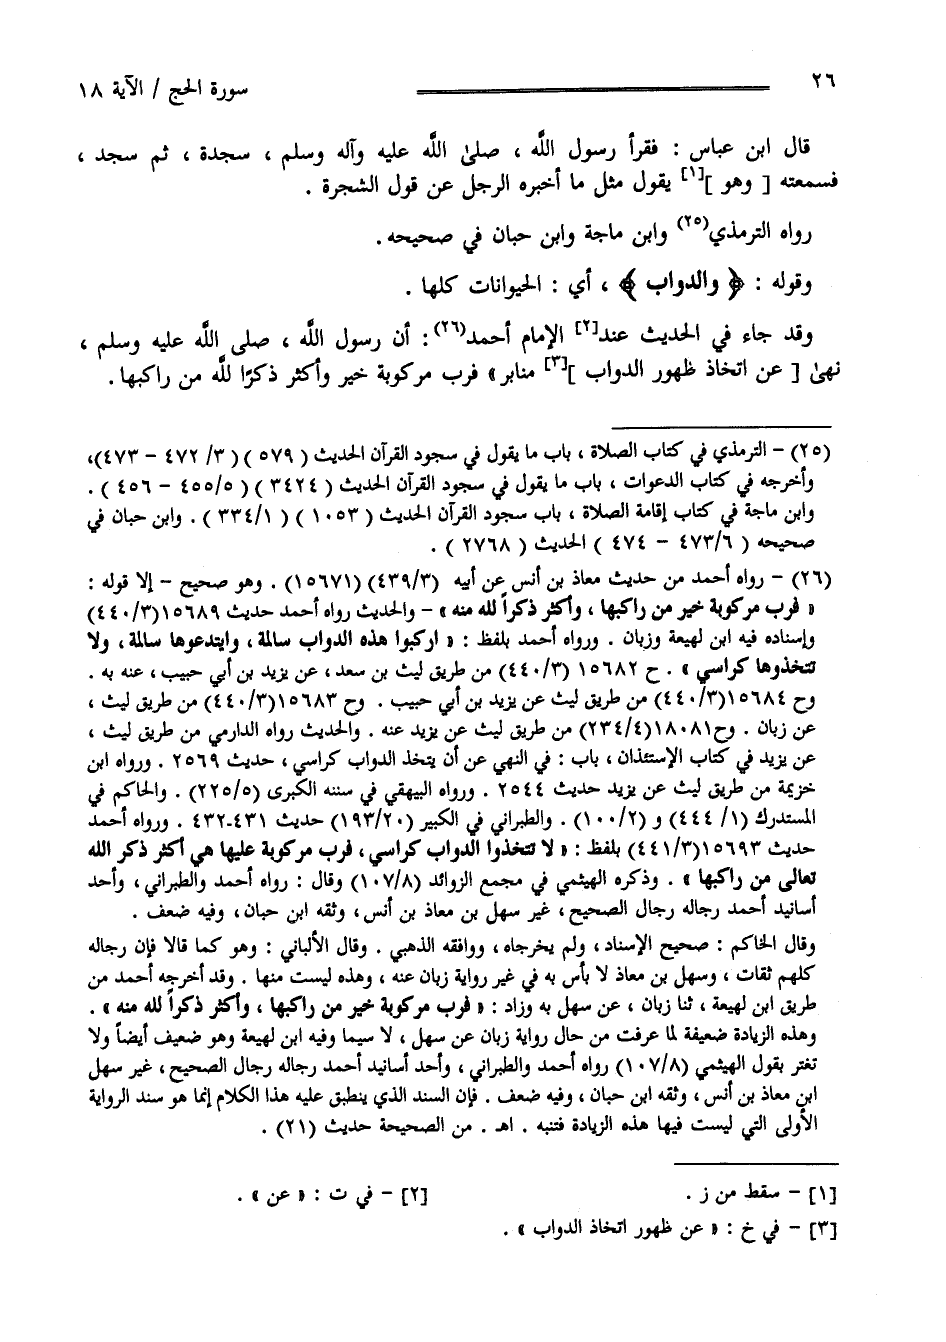 ٢٦ سورة الحج / الآية ١٨
قال ابن عباس : فقرأ رسول اللَّه ، صلىٰ اللَّه عليه وآله وسلم ، سجدة ، ثم سجد ،
فسمعته [ وهو ][١] يقول مثل ما أخبره الرجل عن قول الشجرة .
رواه الترمذي(٢٥) وابن ماجة وابن حبان في صحيحه.
وقوله : ﴿ والدواب ﴾ ، أي : الحيوانات كلها .
وقد جاء في الحديث عند[٢] الإمام أحمد(٢٦): أن رسول اللَّه ، صلى اللَّه عليه وسلم ،
نهىٰ [ عن اتخاذ ظهور الدواب ][٣] منابر» فرب مركوبة خير وأكثر ذكرًا للَّه من راكبها.
(٢٥) - الترمذي في كتاب الصلاة ، باب ما يقول في سجود القرآن الحديث ( ٥٧٩ ) ( ٣/ ٤٧٢ - ٤٧٣)،
وأخرجه في كتاب الدعوات ، باب ما يقول في سجود القرآن الحديث ( ٣٤٢٤ ) ( ٤٥٥/٥ - ٤٥٦ ) .
وابن ماجة في كتاب إقامة الصلاة ، باب سجود القرآن الحديث ( ١٠٥٣ ) ( ٣٣٤/١ ) . وابن حبان في
صحيحه ( ٤٧٣/٦ - ٤٧٤ ) الحديث ( ٢٧٦٨ ) .
(٢٦) - رواه أحمد من حديث معاذ بن أنس عن أبيه (٤٣٩/٣) (١٥٦٧١). وهو صحيح - إلا قوله :
« فرب مركوبة خير من راكبها ، وأكثر ذكراً لله منه » - والحديث رواه أحمد حديث ١٥٦٨٩(٤٤٠/٣)
وإسناده فيه ابن لهيعة وزبان . ورواه أحمد بلفظ : « اركبوا هذه الدواب سالمة، وايتدعوها سالمة، ولا
تتخذوها كراسي » . ح ١٥٦٨٢ (٤٤٠/٣) من طريق ليث بن سعد، عن يزيد بن أبي حبيب ، عنه به .
وح ١٥٦٨٤(٤٤٠/٣) من طريق ليث عن يزيد بن أبي حبيب . وح ١٥٦٨٣(٤٤٠/٣) من طريق ليث ،
عن زبان . وح١٨٠٨١(٢٣٤/٤) من طريق ليث عن يزيد عنه . والحديث رواه الدارمي من طريق ليث ،
عن يزيد في كتاب الإستئذان ، باب : في النهي عن أن يتخذ الدواب كراسي ، حديث ٢٥٦٩ . ورواه ابن
خزيمة من طريق ليث عن يزيد حديث ٢٥٤٤ . ورواه البيهقي في سننه الكبرى (٢٢٥/٥) . والحاكم في
المستدرك (١/ ٤٤٤) و (١٠٠/٢) . والطبراني في الكبير (١٩٣/٢٠) حديث ٤٣١-٤٣٢ . ورواه أحمد
حديث ١٥٦٩٣(٤٤١/٣) بلفظ : « لا تتخذوا الدواب كراسي ، فرب مركوبة عليها هي أكثر ذكر الله
تعالى من راكبها » . وذكره الهيثمي في مجمع الزوائد (١٠٧/٨) وقال : رواه أحمد والطبراني ، وأحد
أسانيد أحمد رجاله رجال الصحيح، غير سهل بن معاذ بن أنس، وثقه ابن حبان، وفيه ضعف .
وقال الحاكم : صحيح الإسناد، ولم يخرجاه، ووافقه الذهبي . وقال الألباني : وهو كما قالا فإن رجاله
كلهم ثقات ، وسهل بن معاذ لا بأس به في غير رواية زبان عنه ، وهذه ليست منها . وقد أخرجه أحمد من
طريق ابن لهيعة ، ثنا زبان ، عن سهل به وزاد : « فرب مركوبة خير من راكبها ، وأكثر ذكراً لله منه » .
وهذه الزيادة ضعيفة لما عرفت من حال رواية زبان عن سهل ، لا سيما وفيه ابن لهيعة وهو ضعيف أيضاً ولا
تغتر بقول الهيثمي (١٠٧/٨) رواه أحمد والطبراني ، وأحد أسانيد أحمد رجاله رجال الصحيح ، غير سهل
ابن معاذ بن أنس، وثقه ابن حبان ، وفيه ضعف . فإن السند الذي ينطبق عليه هذا الكلام إنما هو سند الرواية
الأولى التي ليست فيها هذه الزيادة فتنبه . اهـ . من الصحيحة حديث (٢١) .
[١] - سقط من ز . [٢] - في ت : « عن » .
[٣] - في خ : « عن ظهور اتخاذ الدواب » .